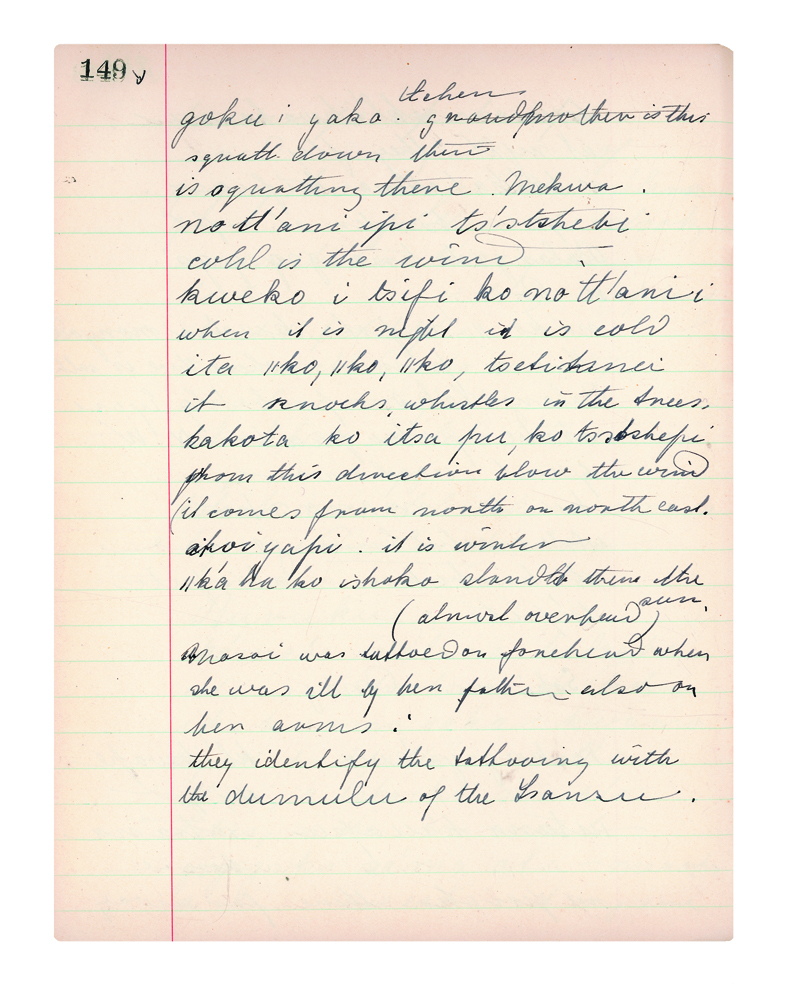 149
goku i yaka. grandmother is this
squatt down there
is squatting there. Mekwa.
nott'ani ipi ts'stshebi
cold is the wind
kweko i tsifi ko nott'ani i
when it is night it is cold
ita ||ko, ||ko, ||ko,
it knocks, whistles in the trees.
kakota ko itsa pu, ko
from this direction blow the wind
(it comes from north or north east.
yapi. it is winter
ko ishoko stands there the
sun.
(almost overhead)
Masai was tattoed on forehead when
she was ill by her father also on
her arms.
they identify the tattooing with
the dumulu of the